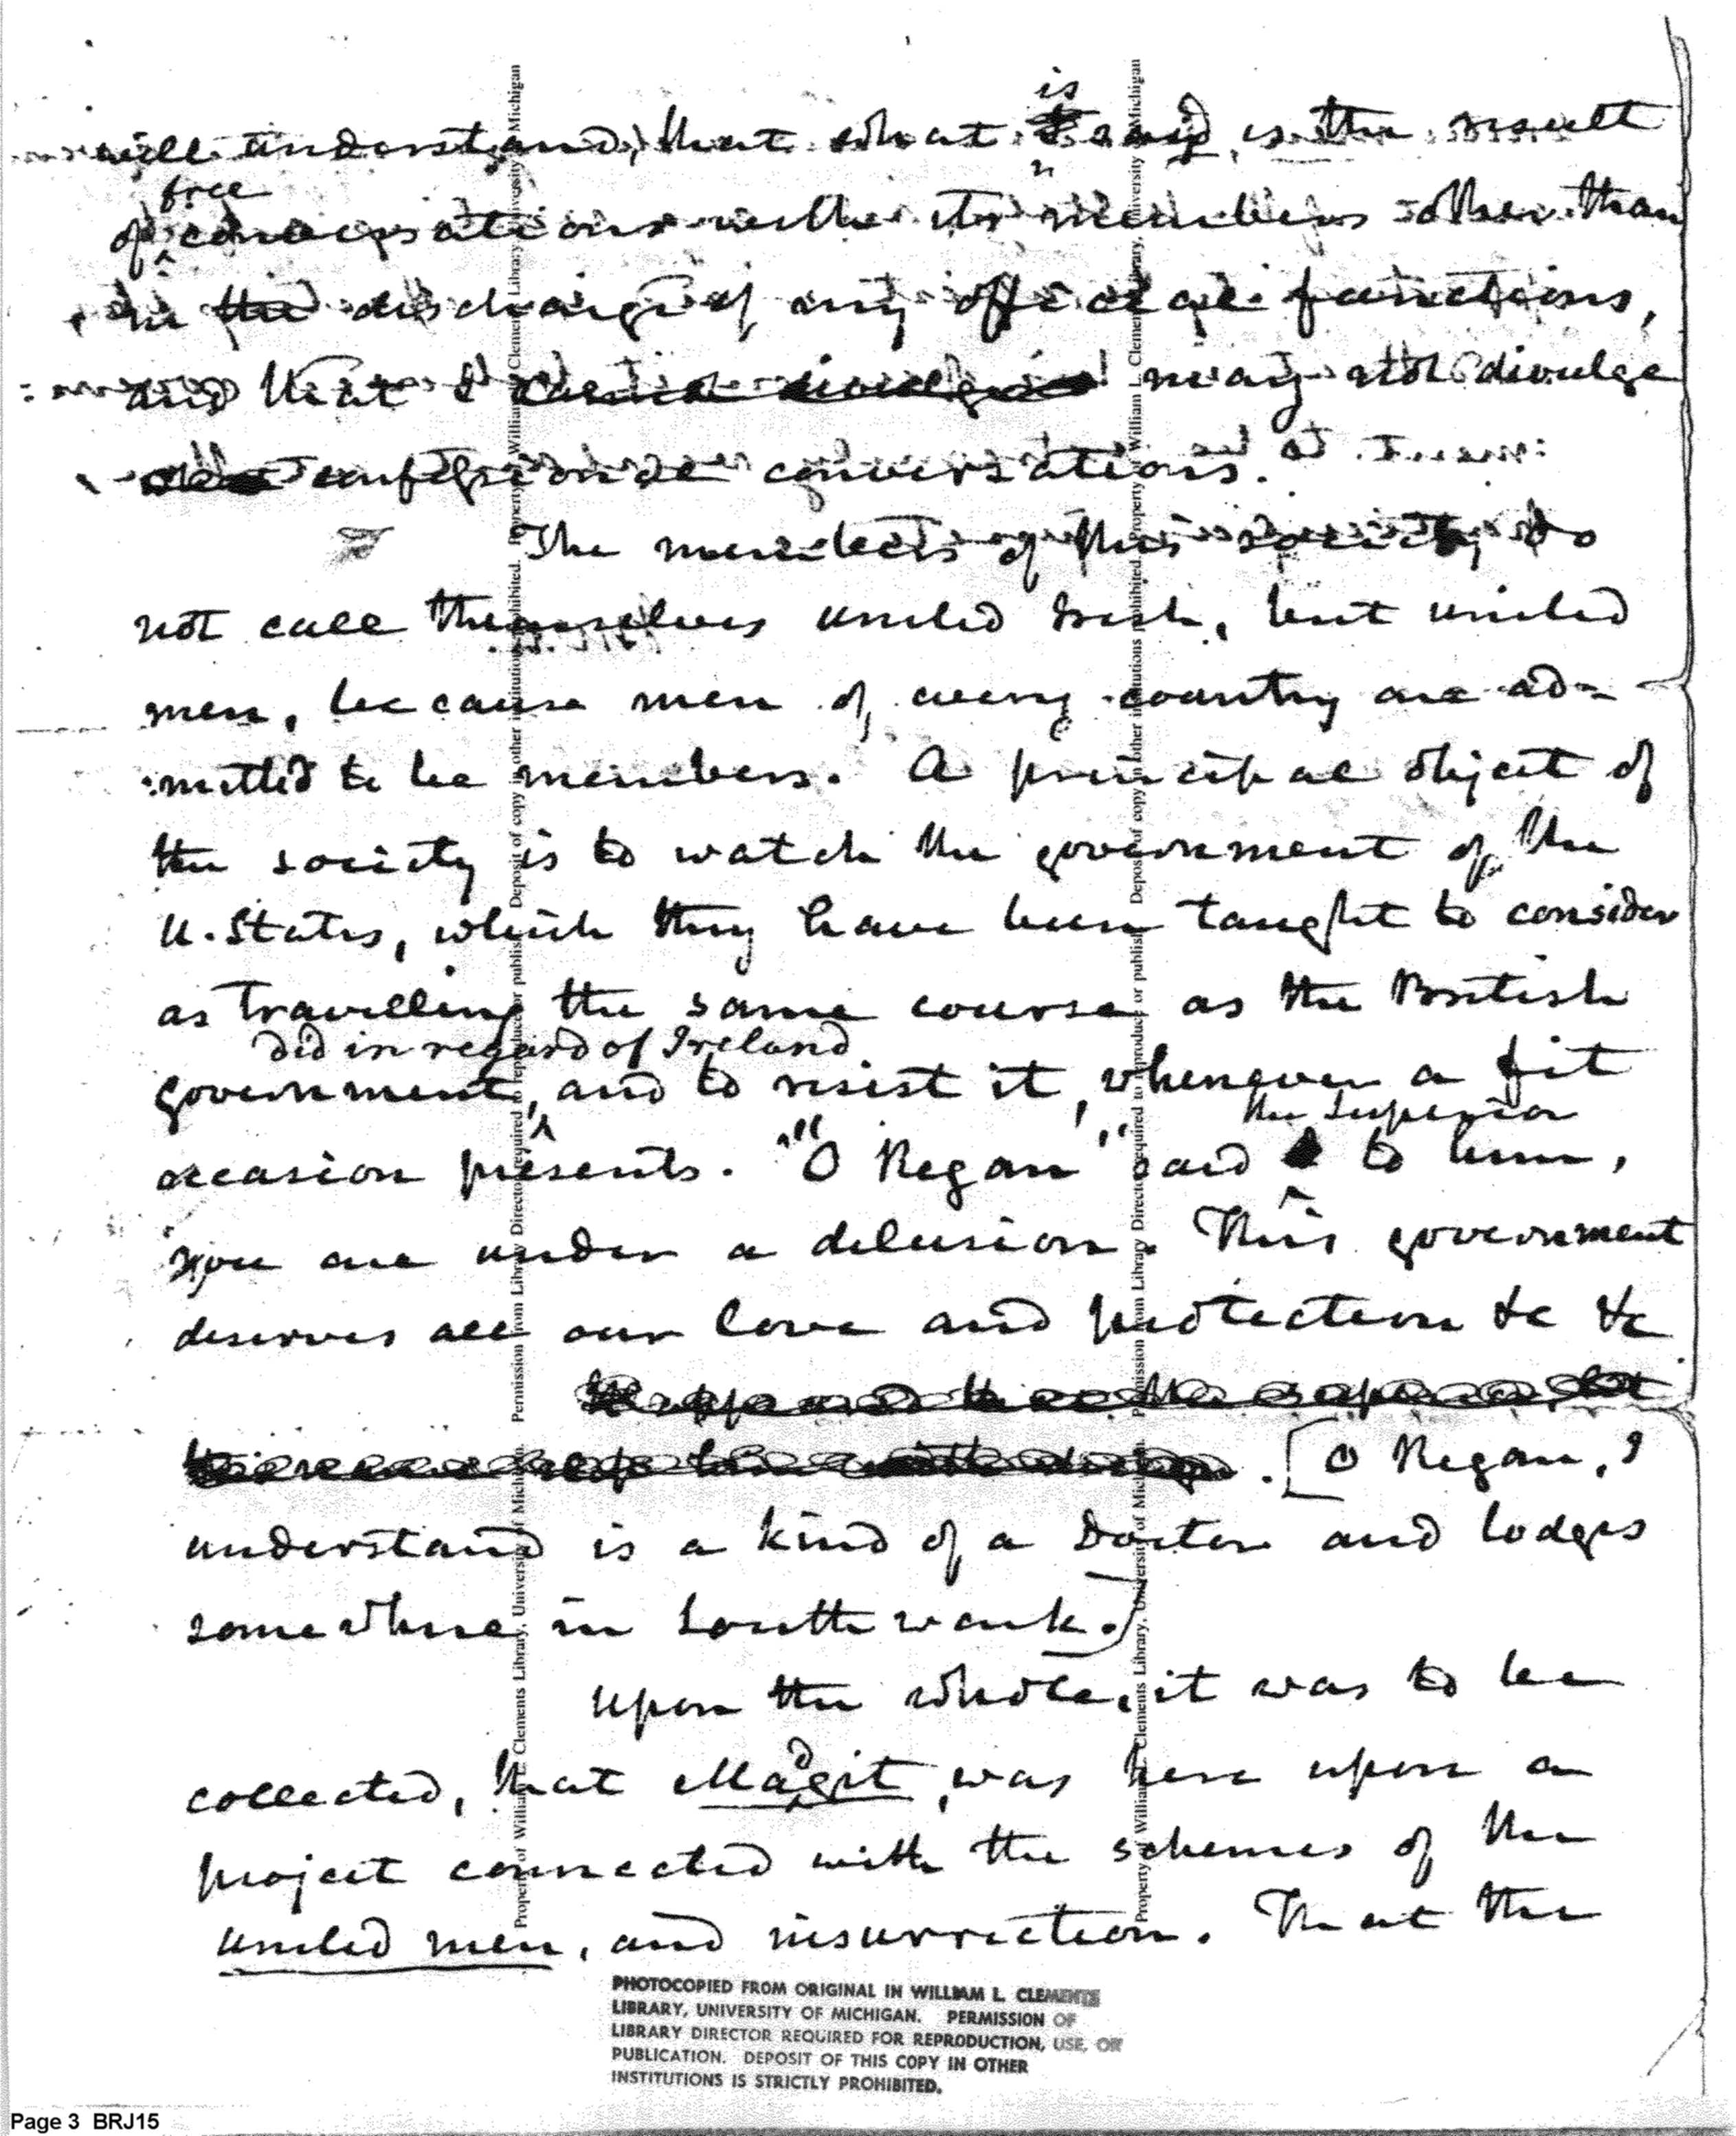 is
will understand, that what said, is the result
free
of conversations with its members other than
in the discharge of my official functions,
and that I may not divulge
confessional conversations.
The members of this society do
not call themselves united Irish, but united
men, because men of every country are ad=
:mitted to be members. A principal object of
the society is to watch the government of the
U. States, which they have been taught to consider
as travelling the same course as the British
did in regard of Ireland
government, and to resist it, whenever a fit
the Superior
occasion presents. "O Regan" said to him,
you are under a delusion. This government
deserves all our love and protection &c &c
[O Regan, I
understand is a kind of a Doctor and lodges
somewhere in Southwark.]
Upon the whole, it was to be
d
collected, that Magit, was here upon a
project connected with the schemes of the
united men, and insurrection. That the
PHOTOCOPIED FROM ORIGINAL IN WILLIAM L. CLEMENTS
LIBRARY, UNIVERSITY OF MICHIGAN. PERMISSION OF
LIBRARY DIRECTOR REQUIRED FOR REPRODUCTION, USE, OR
PUBLICATION. DEPOSIT OF THIS COPY IN OTHER
INSTITUTIONS IS STRICTLY PROHIBITED.
Page 3 BRJ15
Property of William L. Clements Library, University of Michigan. Permission from Library Director required to reproduce or publish. Deposit of copy in other institutions prohibited. Property of William L. Clements Library, University of Michigan
Property of William L. Clements Library, University of Michigan. Permission from Library Director required to reproduce or publish. Deposit of copy in other institutions prohibited. Property of William L. Clements Library, University of Michigan